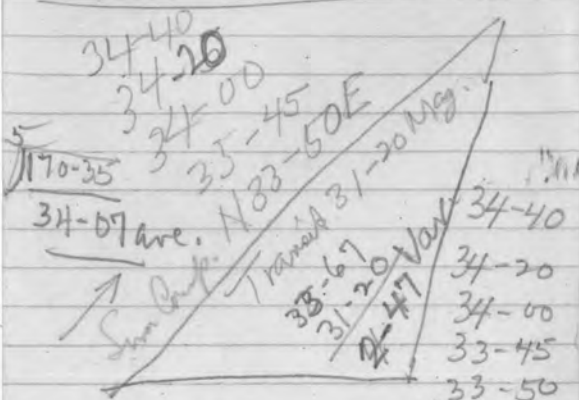 34-40
34-20
34-00
33-45
N 33-50E
5
170-35
34-07 ave.
Sun Comp.
Transit 31-20 Mag.
33-67
31-20
2-47 Var
34-40
34-20
34-00
33-45
33-50